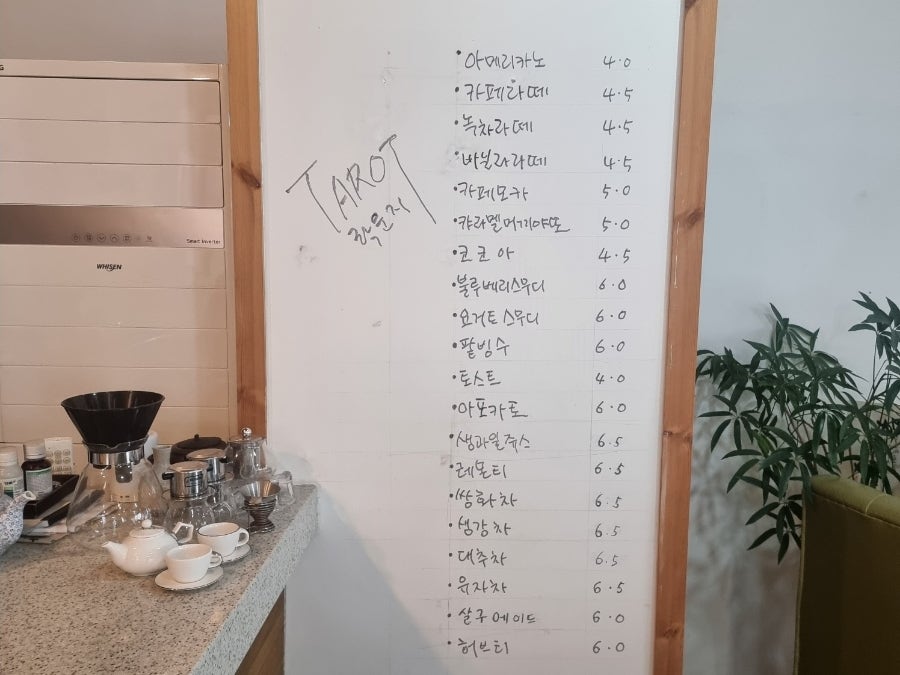 TAROT
아메리카노 4.0
카페라떼 4.5
녹차라떼 4.5
바닐라라떼 4.5
카페모카 5.0
캬라멜머끼야또 5.0
코코아 4.5
블루베리스무디 6.0
요거트스무디 6.0
팥빙수 6.0
토스트 4.0
아포카토 6.0
생과일쥬스 6.5
레몬티 6.5
쌍화차 6.5
생강차 6.5
대추차 6.5
유자차 6.5
살구에이드 6.0
허브티 6.0
Smart Inverter
WHISEN